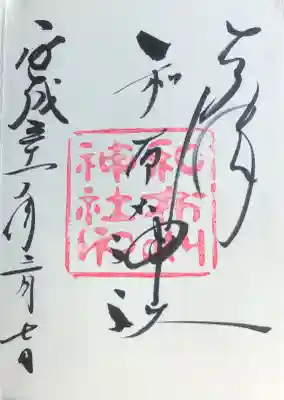 奉拝
和布刈神社
平成三十一年
七日
和布刈
神社